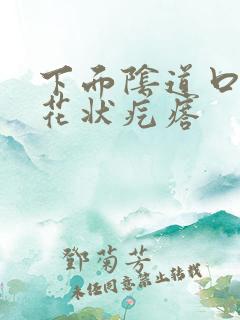 下而陰道口
花状疙瘩
鄧菊芳
未经同意禁止转载